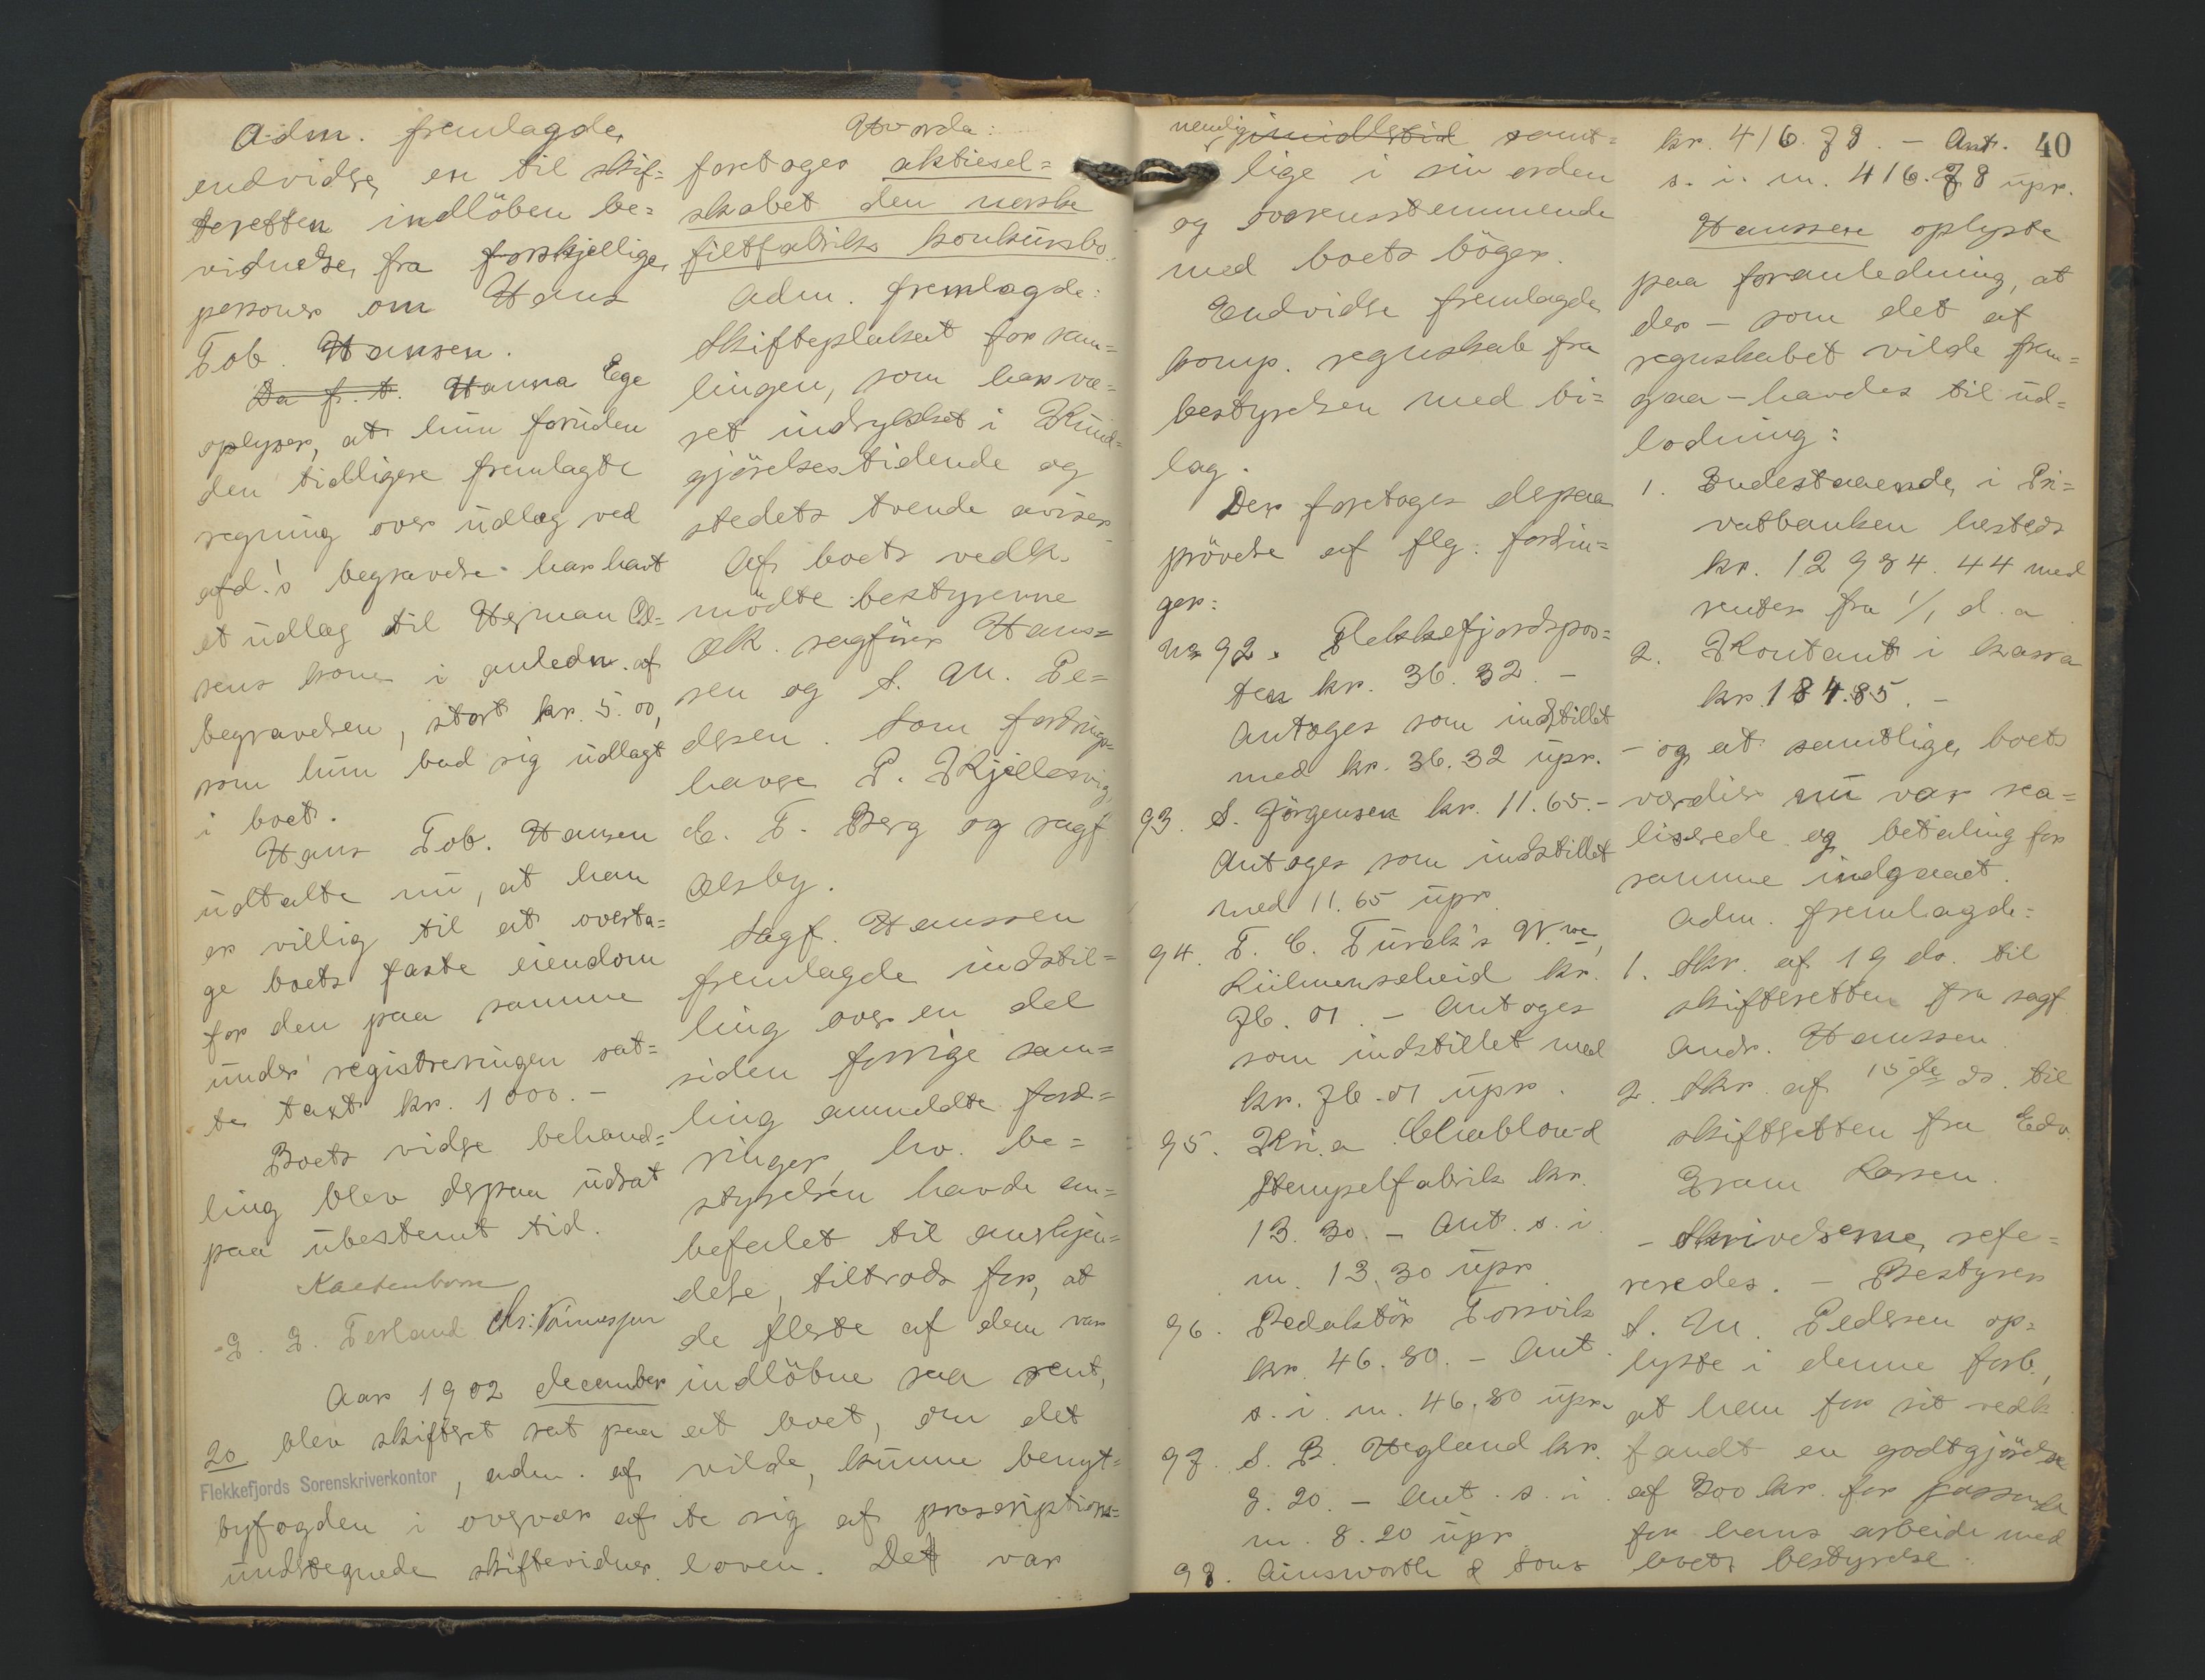 Adm. fremlagde
endvidere en til skif=
teretten indlöben be=
vidnelse fra forskjellige
personer om Hans
Tob. Hansen.
Da f. t. Hanna Ege
oplyser, at hun foruden
den tidligere fremlagte
regning over udlæg ved
afd.'s begravelse har havt
et udlæg til Herman Ol=
sens kone i anledn. af
begravelsen, stort kr. 5.00,
som hun bad sig udlagt
i boet.
Hans Tob. Hansen
udtalte nu, at han
er villig til at overta=
ge boets faste eiendom
for den paa samme
under registreringen sat=
te taxt kr. 1000.-
Boets videre behand=
ling blev derpaa udsat
paa ubestemt tid.
Aar 1902 december
20 blev skifteret sat paa
Flekkefjords Sorenskriverkontor, adm. af
byfogden i overvær af
undertegnede skiftevidner.
Hvorda:
foretoges aktiesel=
skabet den norske
filtfabriks konkursbo.
Adm. fremlagde:
Skifteplakat for sam=
lingen, som har væ=
ret indrykket i Kund=
gjörelsestidende og
stedets tvende aviser.
Af boets vedk.
mödte bestyrerne
OR. sagförer Hans=
sen og S. M. Pe=
dersen. Som fordrings=
havere P. Kjellesvig,
C. T. Berg og sagf.
Olsby.
Sagf. Hanssen
fremlagde indstil=
ling over en del
siden forrige sam=
ling anmeldte ford=
ringer, hv. be=
styrelsen havde an=
befalet til anerkjen=
delse, tiltrods for, at
de fleste af dem var
indlöbne saa sent,
at boet, om det
vilde, kunne benyt=
te sig af proscriptions=
loven. Det var
nemlig imidlertid samt=
lige i sin orden
og overensstemmende
med boets böger.
Endvidere fremlagde
komp. regnskab fra
bestyrelsen med bi=
lag.
Der foretoges derpaa
prövelse af flg. fordrin=
ger:
No 92. Flekkefjordspos=
ten kr. 36.32.-
Antoges som indstillet
med kr. 36.32 upr.
93. S. Jörgensen kr. 11.65.-
Antoges som indstillet
med 11.65 upr.
94. F. C. Türck's Wwe,
Lüdenscheid kr.
76.01.- Antoges
som indstillet med
kr. 76.01 upr.
95. Kr.a Chablon &
Stempelfabrik kr.
13.30.- Ant. s. i.
m. 13.30 upr.
96. Redaktör Torsvik
kr. 46.80.- Ant.
s. i. m. 46.80 upr.
97. S. B. Hegland kr.
8.20.- Ant. s. i.
m. 8.20 upr.
98. Ainsworth & Sons
40
kr. 416.78.- Ant.
s. i. m. 416.78 upr.
Hanssen oplyste
paa foranledning, at
der - som det af
regnskabet vilde frem=
gaa - havdes til ud=
lodning:
1. Indestaaende i Pri=
vatbanken hersteds
kr. 12984.44 med
renter fra 1/1 d. a.
2. Kontant i kassa
kr. 184.85.-
- og at samtlige boets
værdier nu var rea=
liserede og betaling for
samme indgaaet.
Adm. fremlagde:
1. Skr. af 19 ds. til
skifteretten fra sagf.
Andr. Hanssen.
2. Skr. af 15de ds. til
skifteretten fra Edv.
Gram Larsen.
- Skrivelserne refe=
reredes. - Bestyrer
S. M. Pedersen op=
lyste i denne forb.,
at han for sit vedk.
fandt en godtgjörelse
af 300 kr. for passende
for hans arbeide med
boets bestyrelse.